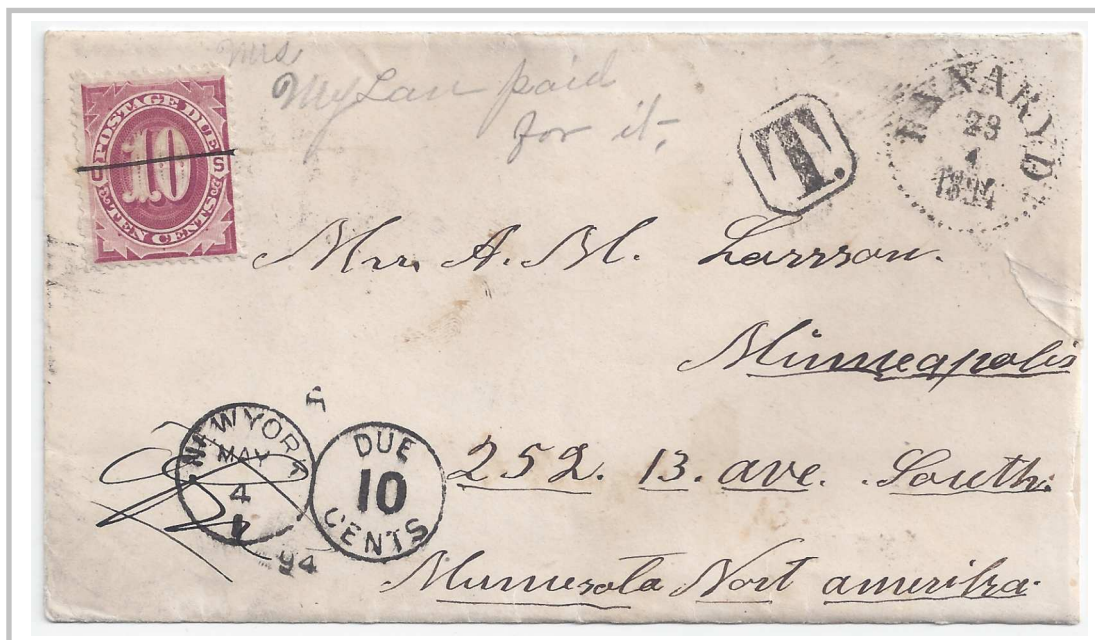 Mrs
MyLau paid
for it,
POSTAGE DUE
10
TEN CENTS
T.
28
4
1894
Mrs. A. M. Larsson.
Minneapolis
252. 13. ave. South.
Minnesota Nort amerika.
NEW YORK
MAY
4
94
DUE
10
CENTS